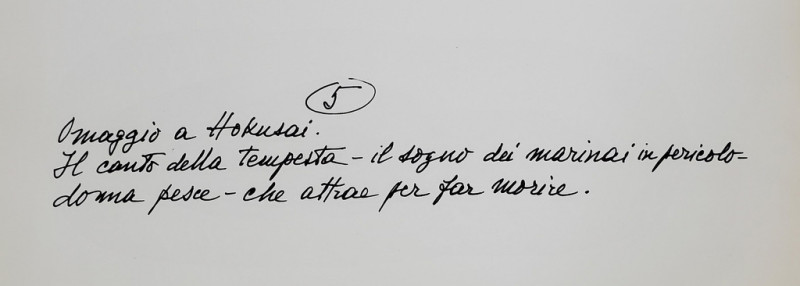 5
Omaggio a Hokusai.
Il canto della tempesta - il sogno dei marinai in pericolo -
donna pesce - che attrae per far morire.